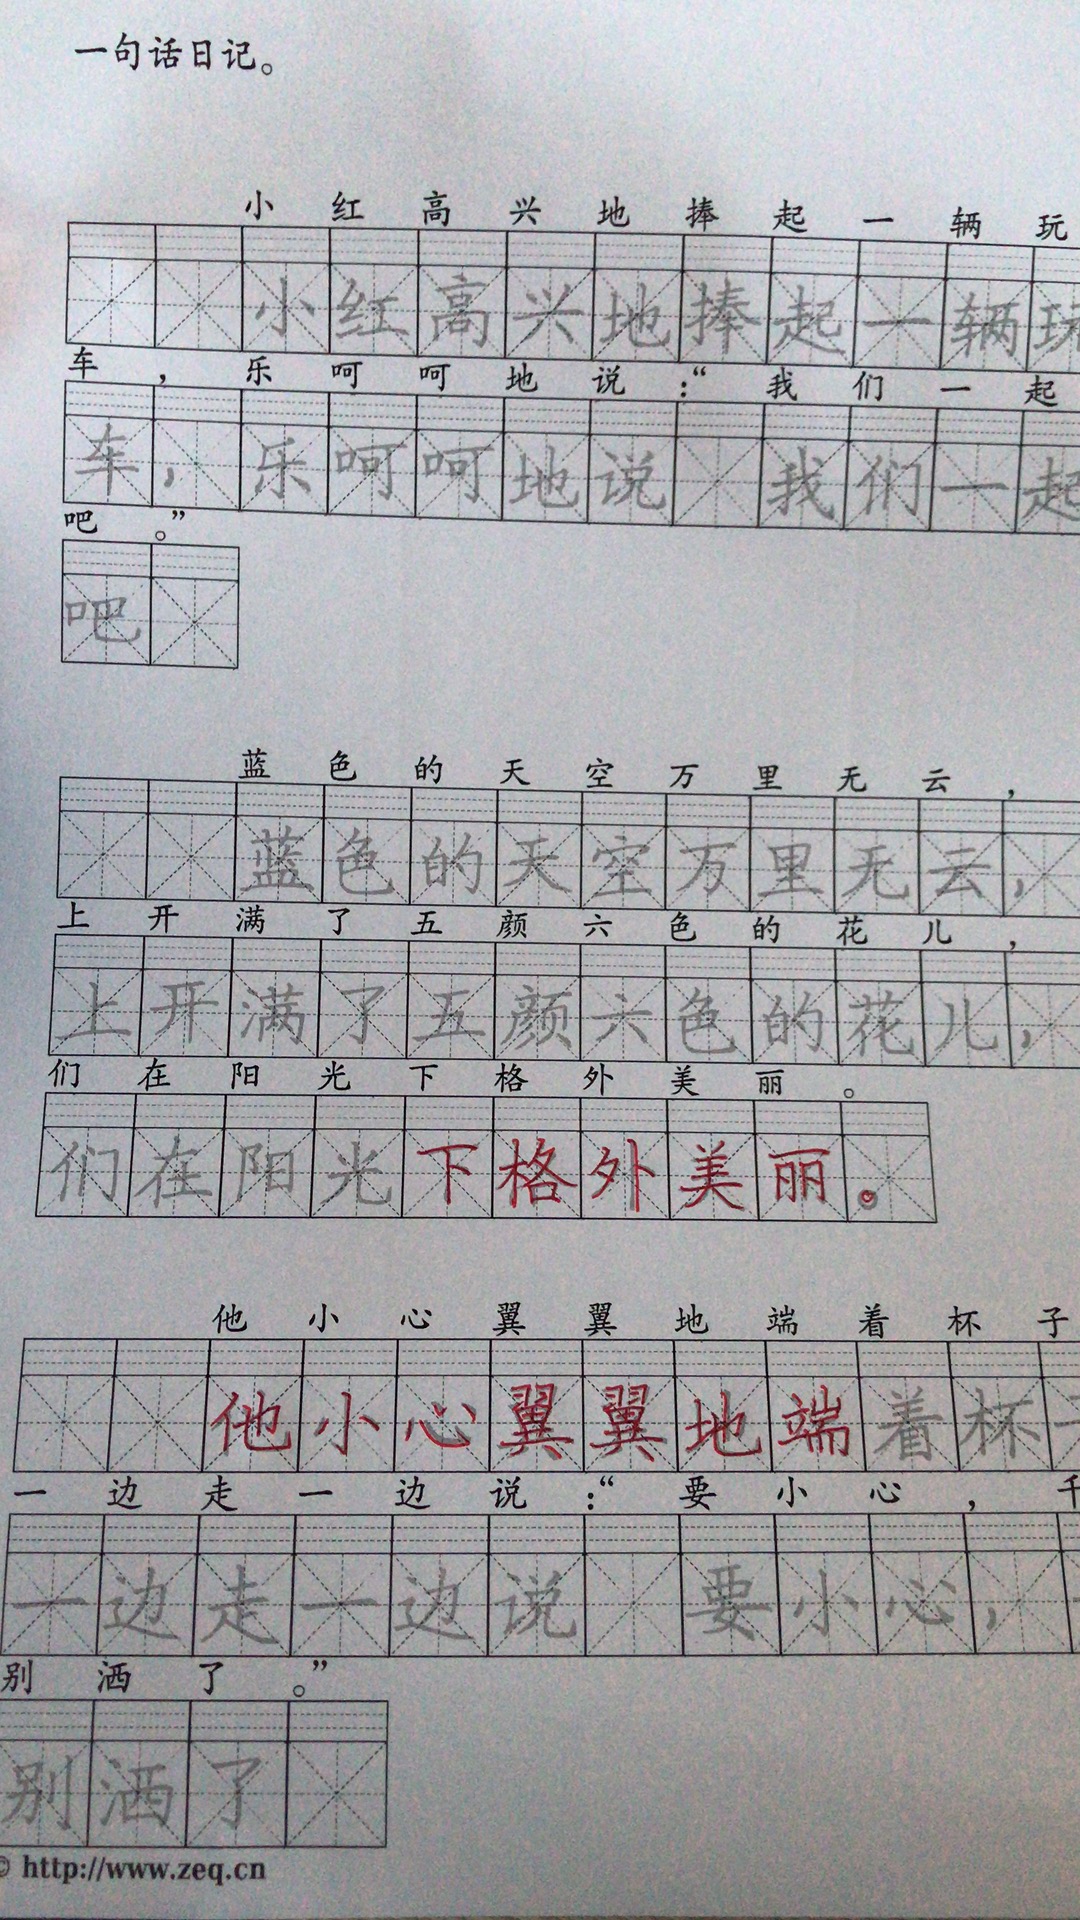 一句话日记。
小红高兴地捧起一辆玩
小红高兴地捧起一辆玩
车，乐呵呵地说：“我们一起
车，乐呵呵地说 我们一起
吧。”
吧
蓝色的天空万里无云，
蓝色的天空万里无云，
上开满了五颜六色的花儿，
上开满了五颜六色的花儿，
们在阳光下格外美丽。
们在阳光下格外美丽。
他小心翼翼地端着杯子
他小心翼翼地端着杯
一边走一边说：“要小心，千
一边走一边说 要小心，
别洒了。”
别洒了
© http://www.zeq.cn